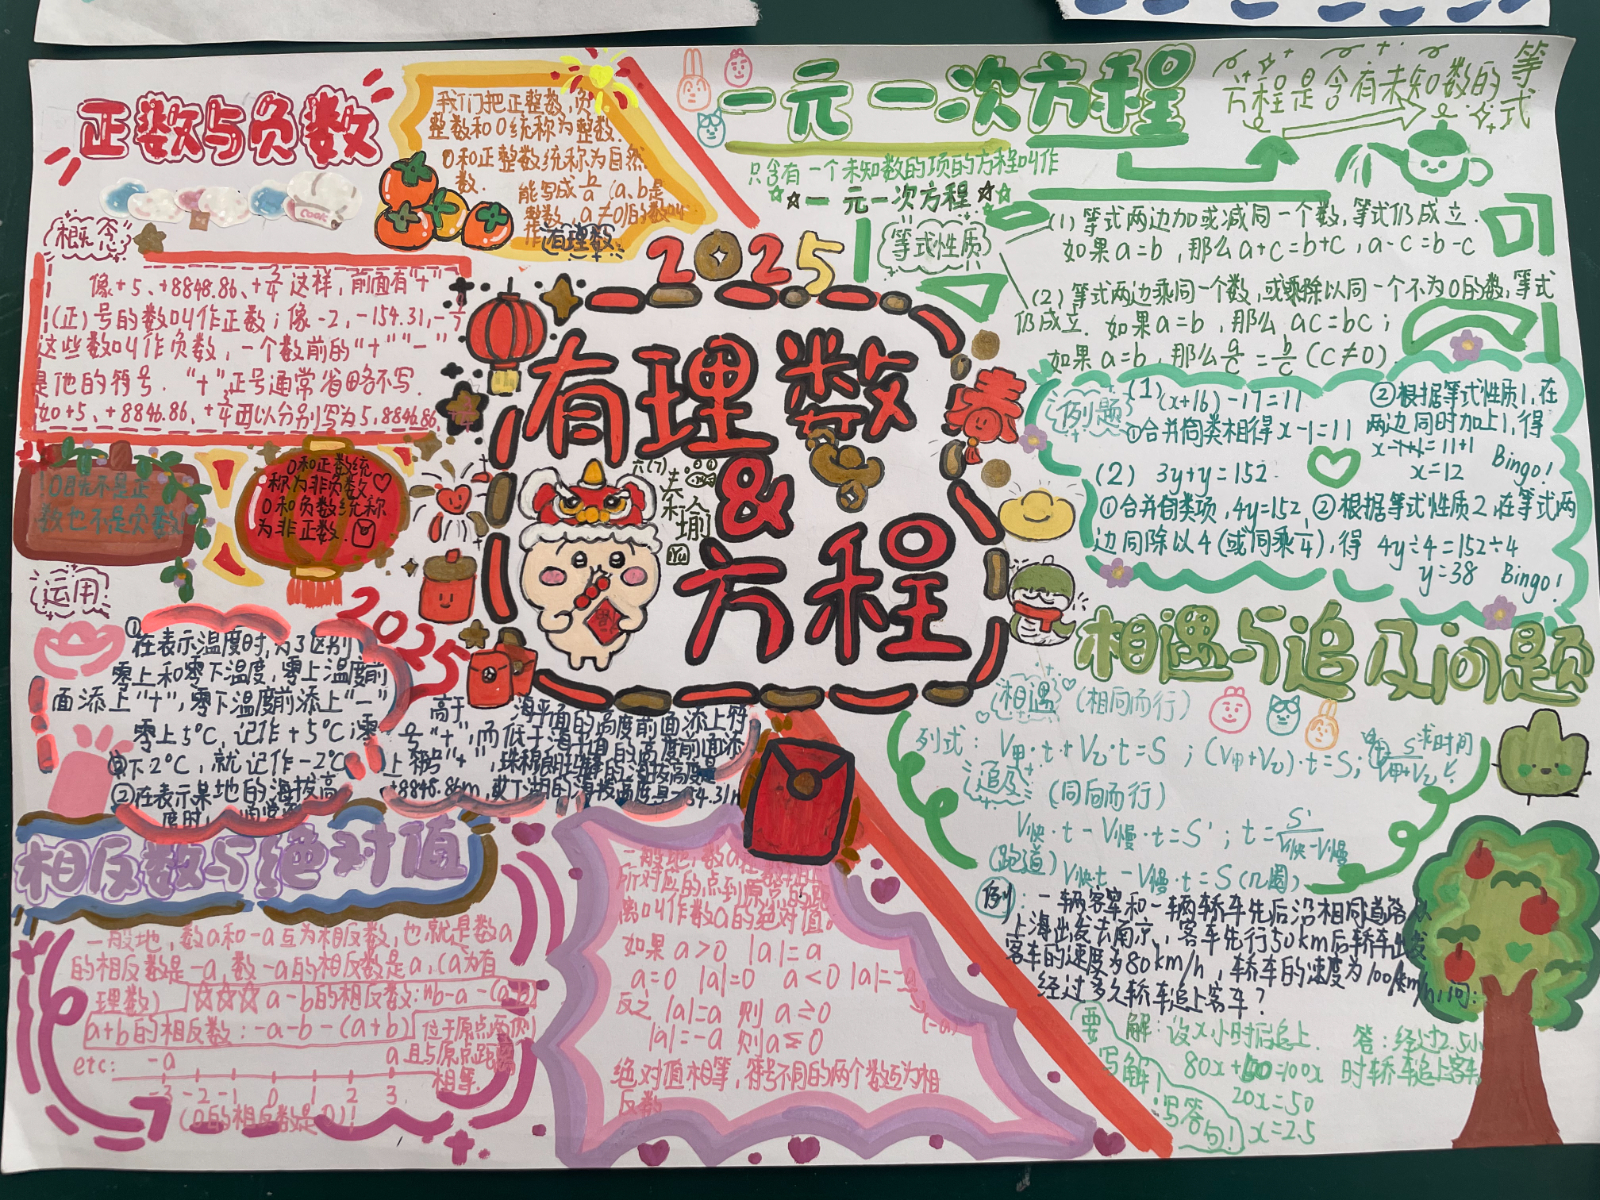 正数与负数
我们把正整数,负
整数和0统称为整数
0和正整数统称为自然
数.
能写成b/a(a,b是
整数,a≠0)的数叫
作有理数
概念
像+5、+8848.86、这样,前面有"+"
(正)号的数叫作正数;像-2,-154.31,
这些数叫作负数,一个数前的"+""-"
是他的符号."+"正号通常省略不写.
如+5、+8846.86、可以分别写为5,8846.86
!0既不是正
数也不是负数
0和正数统
称为非负数♡
0和负数统称
为非正数.
运用
①在表示温度时,为了区别
零上和零下温度,零上温度前
面添上"+",零下温度前添上"-"
零上5°C,记作+5°C;零
下2°C,就记作-2°C
②在表示某地的海拔高
度时,
高于 海平面的高度前面添上符
号"+",而低于海平面的高度前面添
上符号"-",珠穆朗玛峰的海拔高度是
+8848.86m,
2025
2025
有理数
&
方程
六(7)
秦
瑜
春
Cook
相反数与绝对值
一般地,数a和-a互为相反数,也就是数a
的相反数是-a,数-a的相反数是a,(a为有
理数)☆☆☆a-b的相反数:
a+b的相反数:-a-b -(a+b)
位于原点两侧
且与原点距离
相等.
etc:
-a a
-3 -2 -1 0 1 2 3
(0的相反数是0)!
一般地,数a
所对应的点到原点的距
离叫作数a的绝对值。
如果a>0 |a|=a
a=0 |a|=0 a<0 |a|=-a
(-a)
反之|a|=a 则a≥0
|a|=-a 则a≤0
绝对值相等,符号不同的两个数互为相
反数
一元一次方程
方程是含有未知数的等式
只含有一个未知数的项的方程叫作
☆☆一元一次方程☆☆
等式性质
(1)等式两边加或减同一个数,等式仍成立.
如果a=b,那么a+c=b+c,a-c=b-c
(2)等式两边乘同一个数,或乘除以同一个不为0的数,等式
仍成立.如果a=b,那么ac=bc;
如果a=b,那么a/c=b/c(c≠0)
例题
(1)(x+16)-17=11
①合并同类相得x-1=11
②根据等式性质1,在
两边同时加上1,得
x-1+1=11+1
x=12 Bingo!
(2) 3y+y=152
①合并同类项,4y=152,②根据等式性质2,在等式两
边同除以4(或同乘1/4),得 4y÷4=152÷4
y=38 Bingo!
相遇与追及问题
相遇(相向而行)
列式:V甲·t+V乙·t=S;(V甲+V乙)·t=S;
求时间
追及(同向而行)
V快·t-V慢·t=S';t=S'/V快-V慢
(跑道)V快t-V慢·t=S(几圈)
例:一辆客车和一辆轿车先后沿相同道路从
上海出发去南京,客车先行50km后轿车出发
客车的速度为80km/h,轿车的速度为100km/h,问:
经过多久轿车追上客车?
要写解!
写答句!
解:设x小时后追上.
80x+ =100x
20x=50
x=2.5
答:经过2.5小
时轿车追上客车